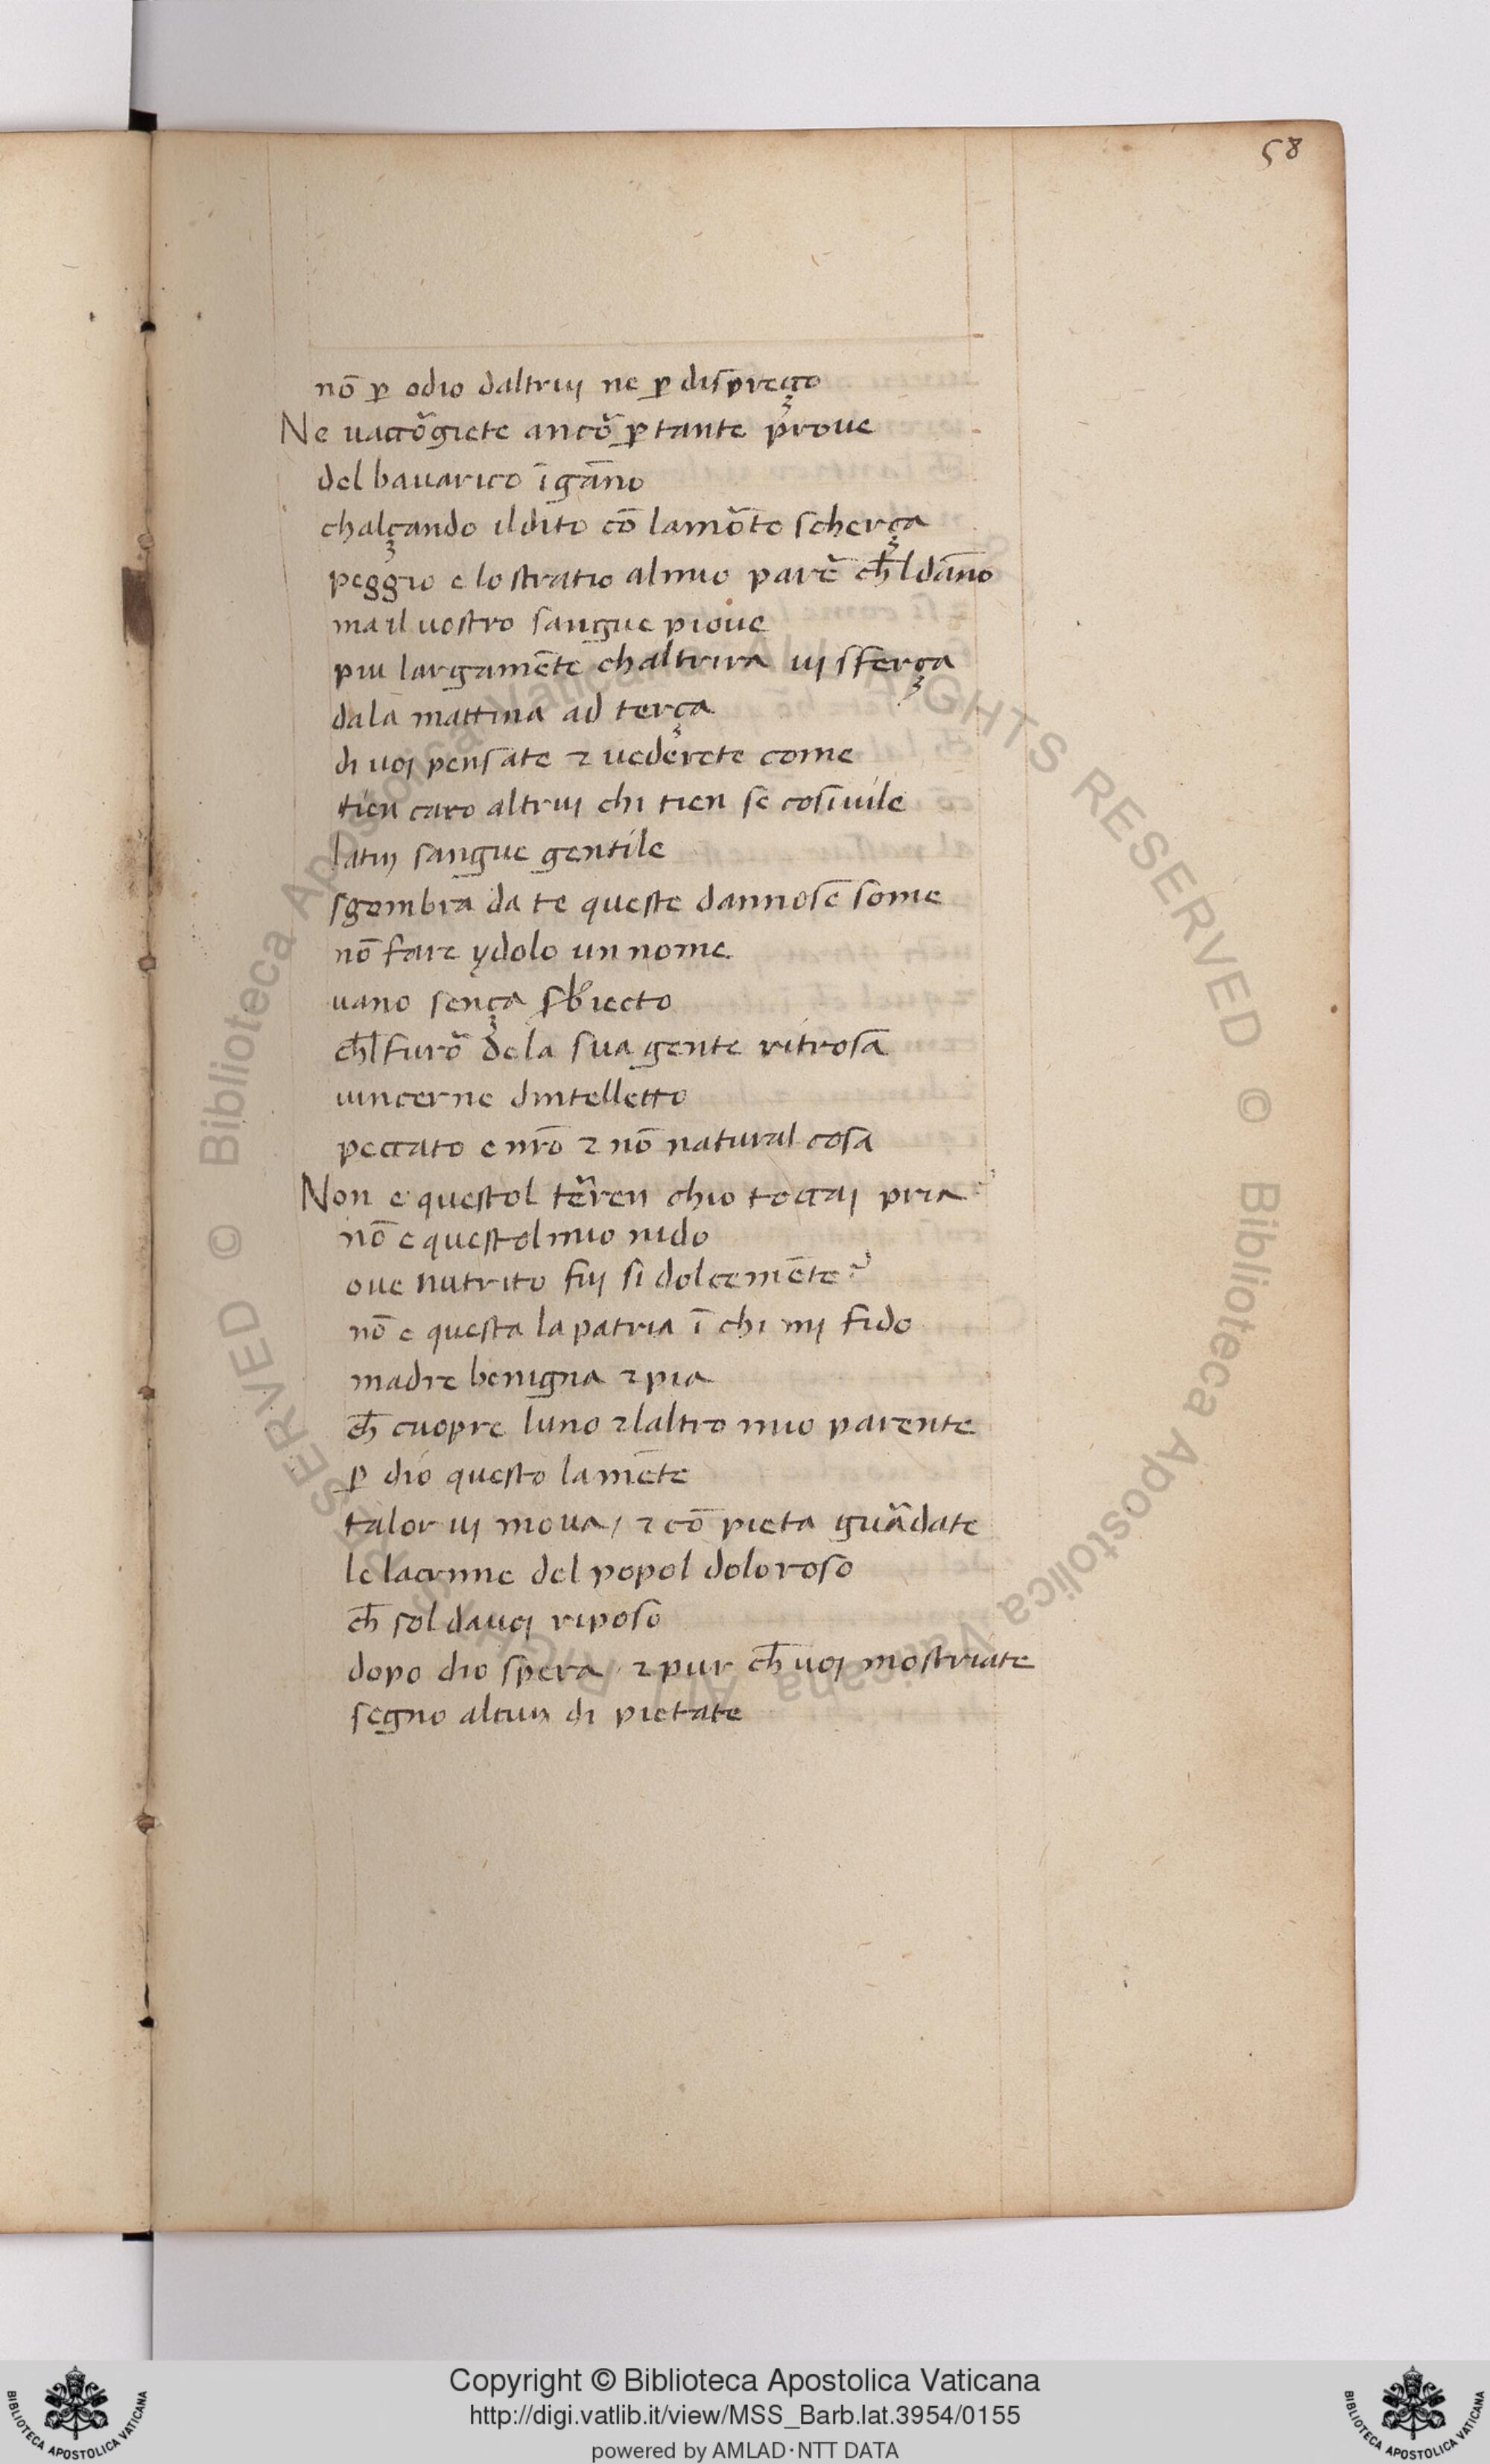 58
nō ꝑ odio daltruj ne ꝑ dispreçço
Ne uaccōgiete ancō ꝑ tante prove
del bavarico īgāno
chalçando ildito cō lamōte scherça
peggio e lo stratio almio parē ch̄l dāno
ma il uostro sangue piove
piu largamēte chaltrira uj sferça
dala mattina ad terça
di uoj pensate ⁊ uederete come
tien caro altruj chi tien se cosi uile
latin sangue gentile
sgombra da te queste dannose some
nō fare ydolo un nome
uano sença sbiecto
ch̄l furō de la sua gente ritrosa
uincerne dintelletto
peccato e nr̄o ⁊ nō natural cosa
Non e questol tēren chio toccaj pria
nō e questol mio nido
ove nutrito fuj si dolcemēte
nō e questa la patria ī chi mj fido
madre benigna ⁊ pia
ch̄ cuopre luno ⁊laltro mio parente
ꝑ dio questo la mēte
talor uj mova / ⁊ cō pieta guādate
le lacrime del popol doloroso
ch̄ sol da uoj riposo
dopo dio spera / ⁊ pur ch̄ uoj mostriate
segno alcun di pietate
© Biblioteca Apostolica Vaticana ALL RIGHTS RESERVED © Biblioteca Apostolica Vaticana ALL RIGHTS RESERVED
BIBLIOTECA APOSTOLICA VATICANA
Copyright © Biblioteca Apostolica Vaticana
http://digi.vatlib.it/view/MSS_Barb.lat.3954/0155
powered by AMLAD·NTT DATA
BIBLIOTECA APOSTOLICA VATICANA